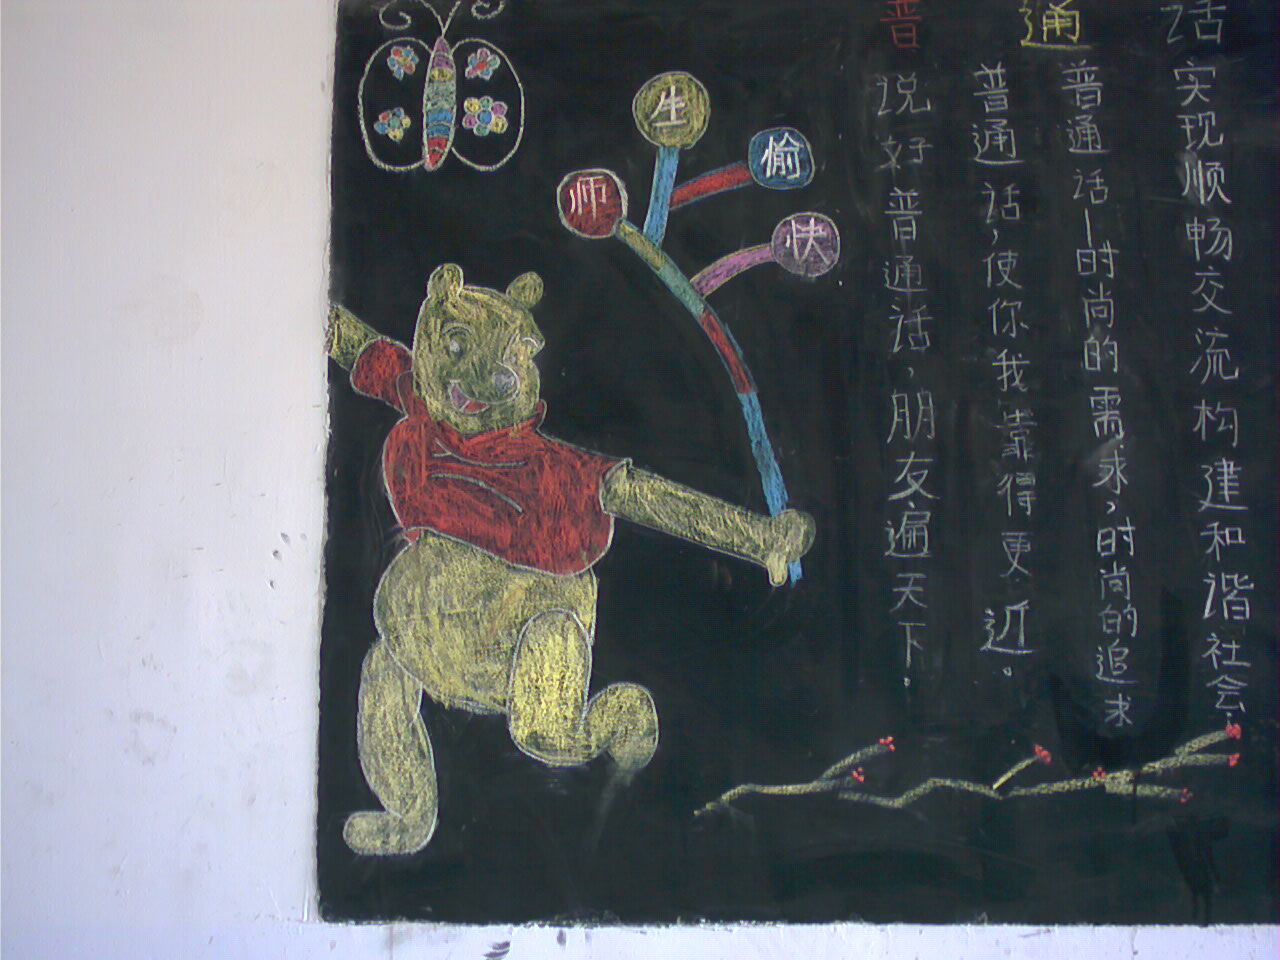 普通话
说好普通话，朋友遍天下.
普通话，使你我靠得更近。
普通话—时尚的需求，时尚的追求
实现顺畅交流构建和谐社会.
师生愉快